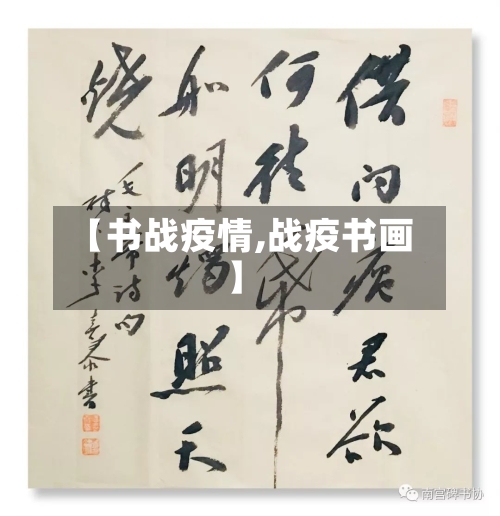 借问瘟君欲
何往纸
船明烛照天
烧
毛主席诗句
【书战疫情,战疫书画
】
南宫碑书协